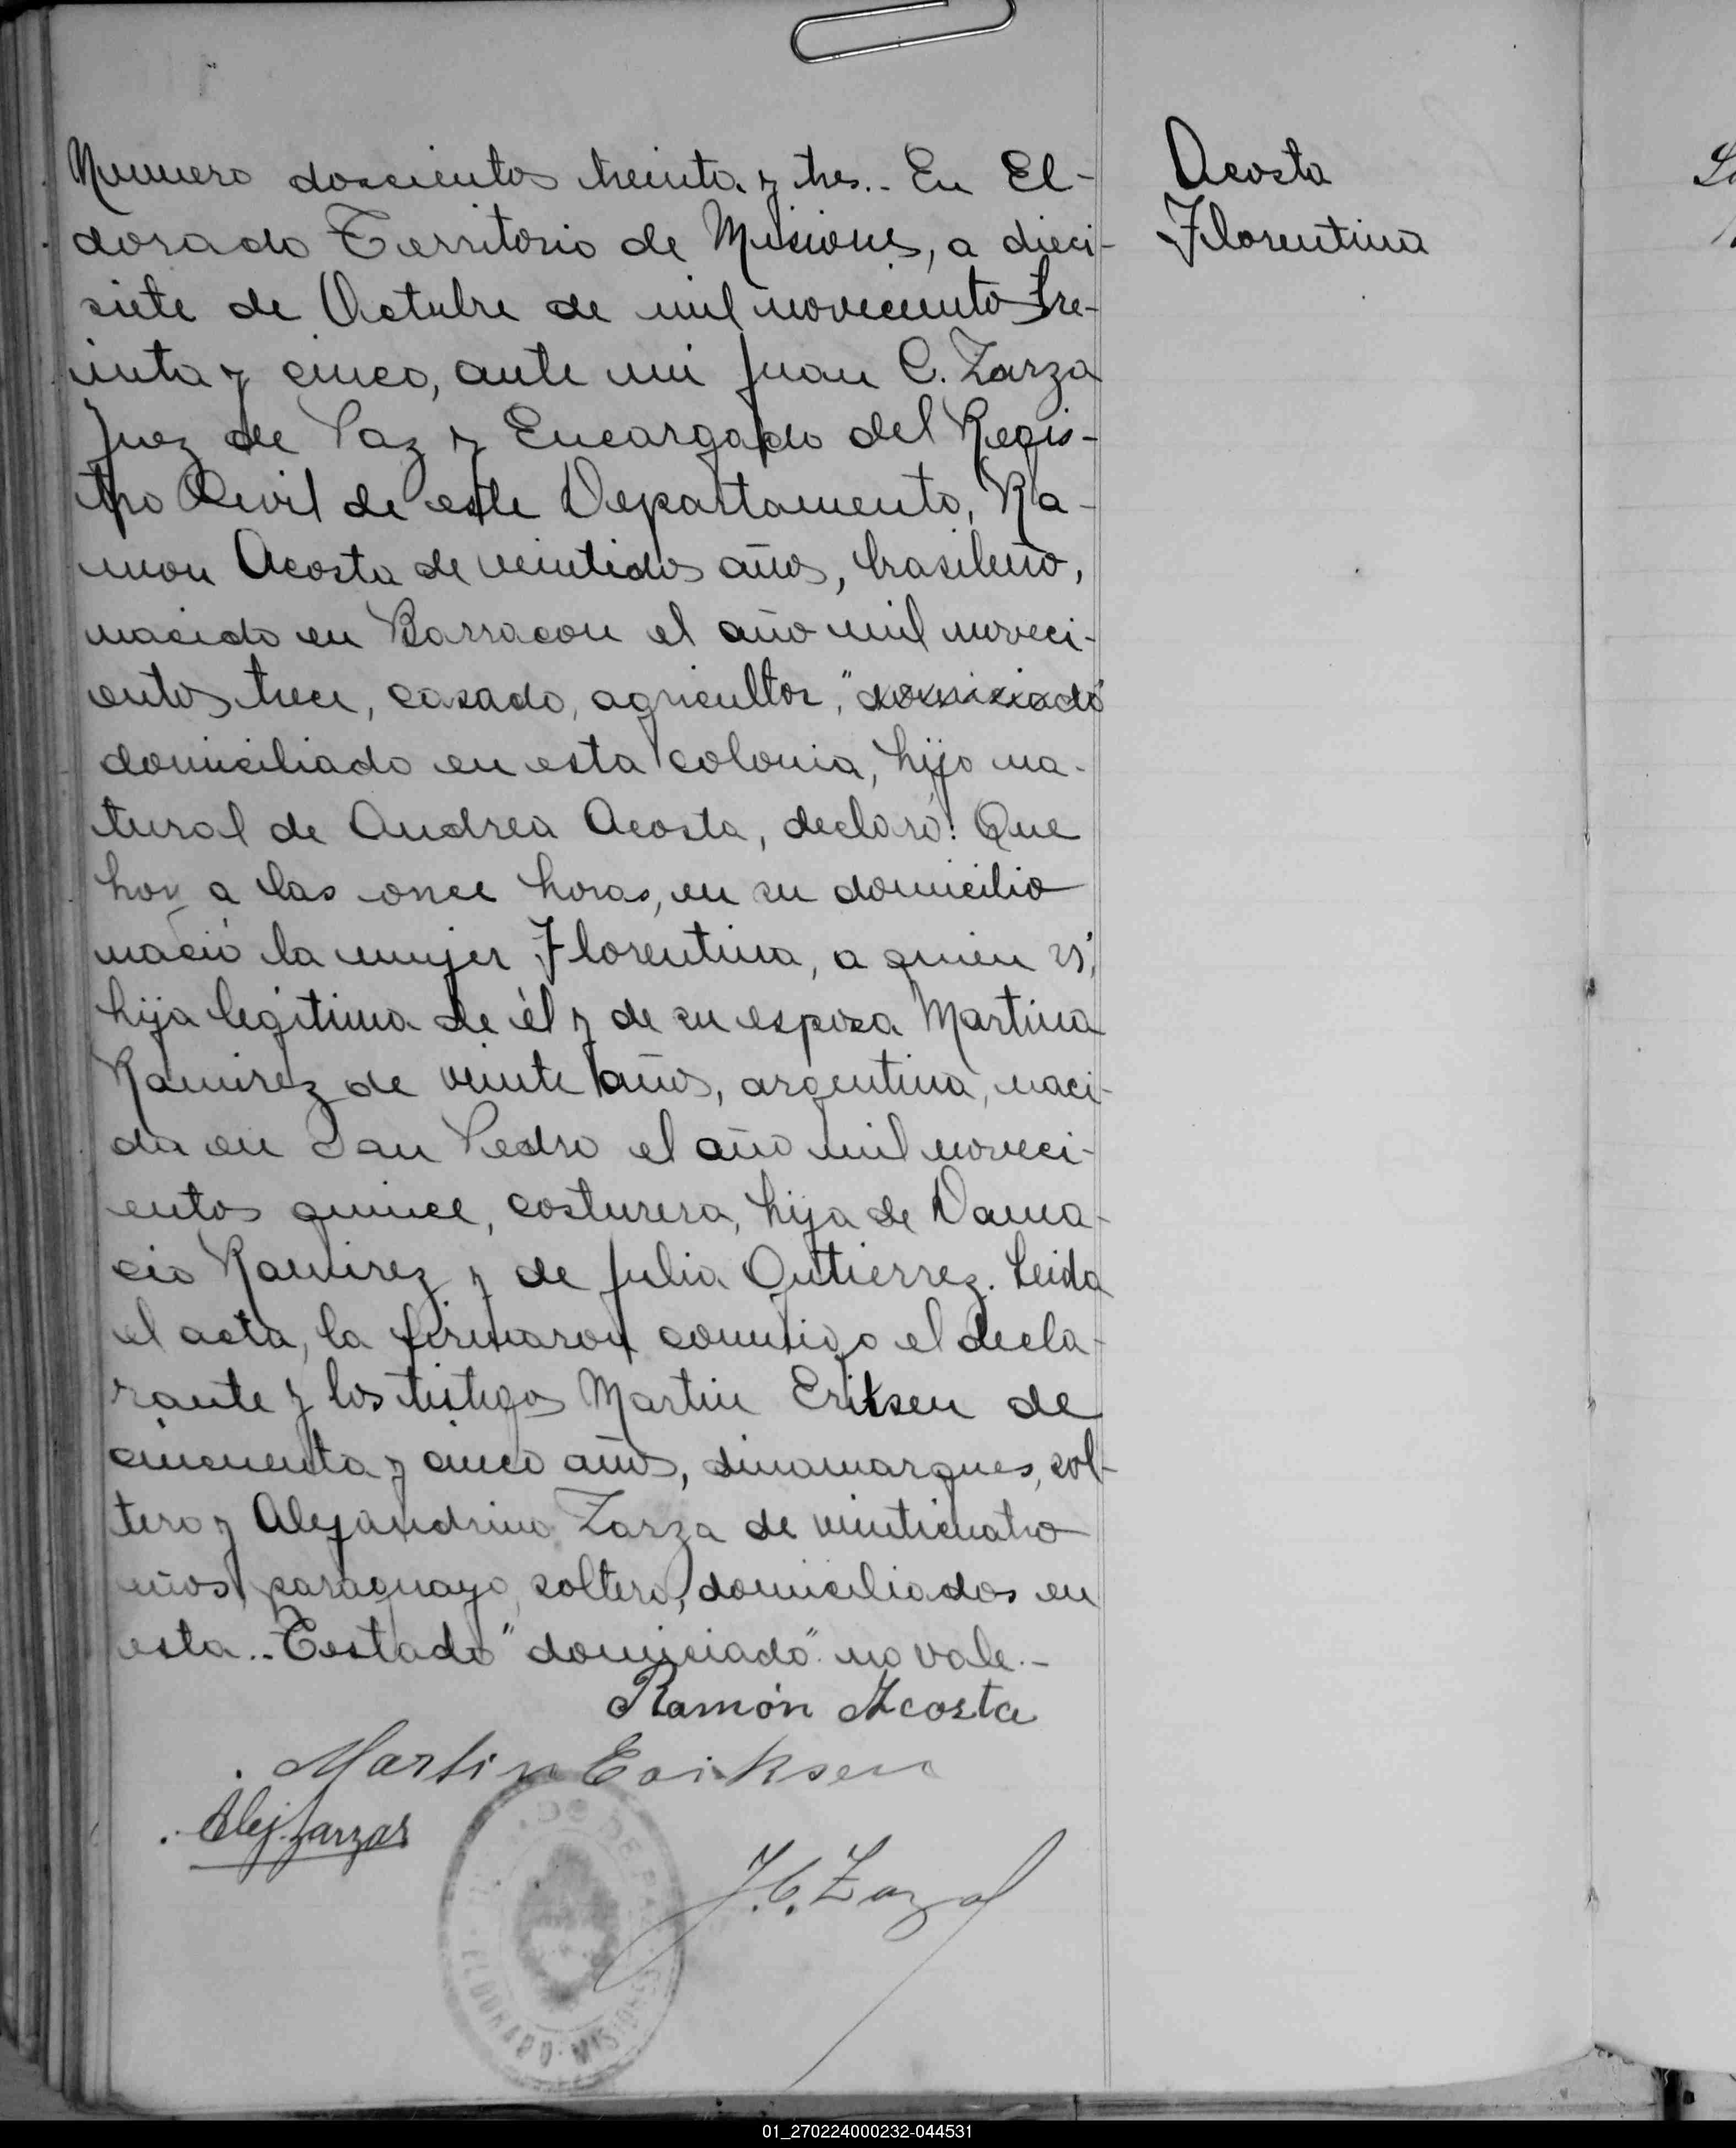 Numero doscientos treinta y tres.- En El-
dorado Territorio de Misiones, a dieci-
siete de Octubre de mil novecientos tre-
inta y cinco, ante mi Juan C. Zarza
Juez de Paz y Encargado del Regis-
tro Civil de este Departamento, Ra-
mon Acosta de veintidos años, brasileño,
nacido en Barracon el año mil noveci-
entos trece, casado, agricultor, "domiciado"
domiciliado en esta colonia, hijo na-
tural de Andrea Acosta, declaró: Que
hoy a las once horas, en su domicilio
nació la mujer Florentina, a quien vi,
hija legítima de él y de su esposa Martina
Ramirez de veinte años, argentina, naci-
da en San Pedro el año mil noveci-
entos quince, costurera, hija de Dama-
cio Ramirez y de Julia Gutierrez. Leida
el acta, la firmaron conmigo el decla-
rante y los testigos Martin Eriksen de
cincuenta y cinco años, dinamarques, sol-
tero y Alejandrino Zarza de veinticuatro
años, paraguayo, soltero, domiciliados en
esta.- Testado "domiciado" no vale.-
Ramón Acosta
Martin Eriksen
Alej. Zarza
J. C. Zarza
DO DE PAZ
ELDORADO - MISIONES
Acosta
Florentina
01_270224000232-044531